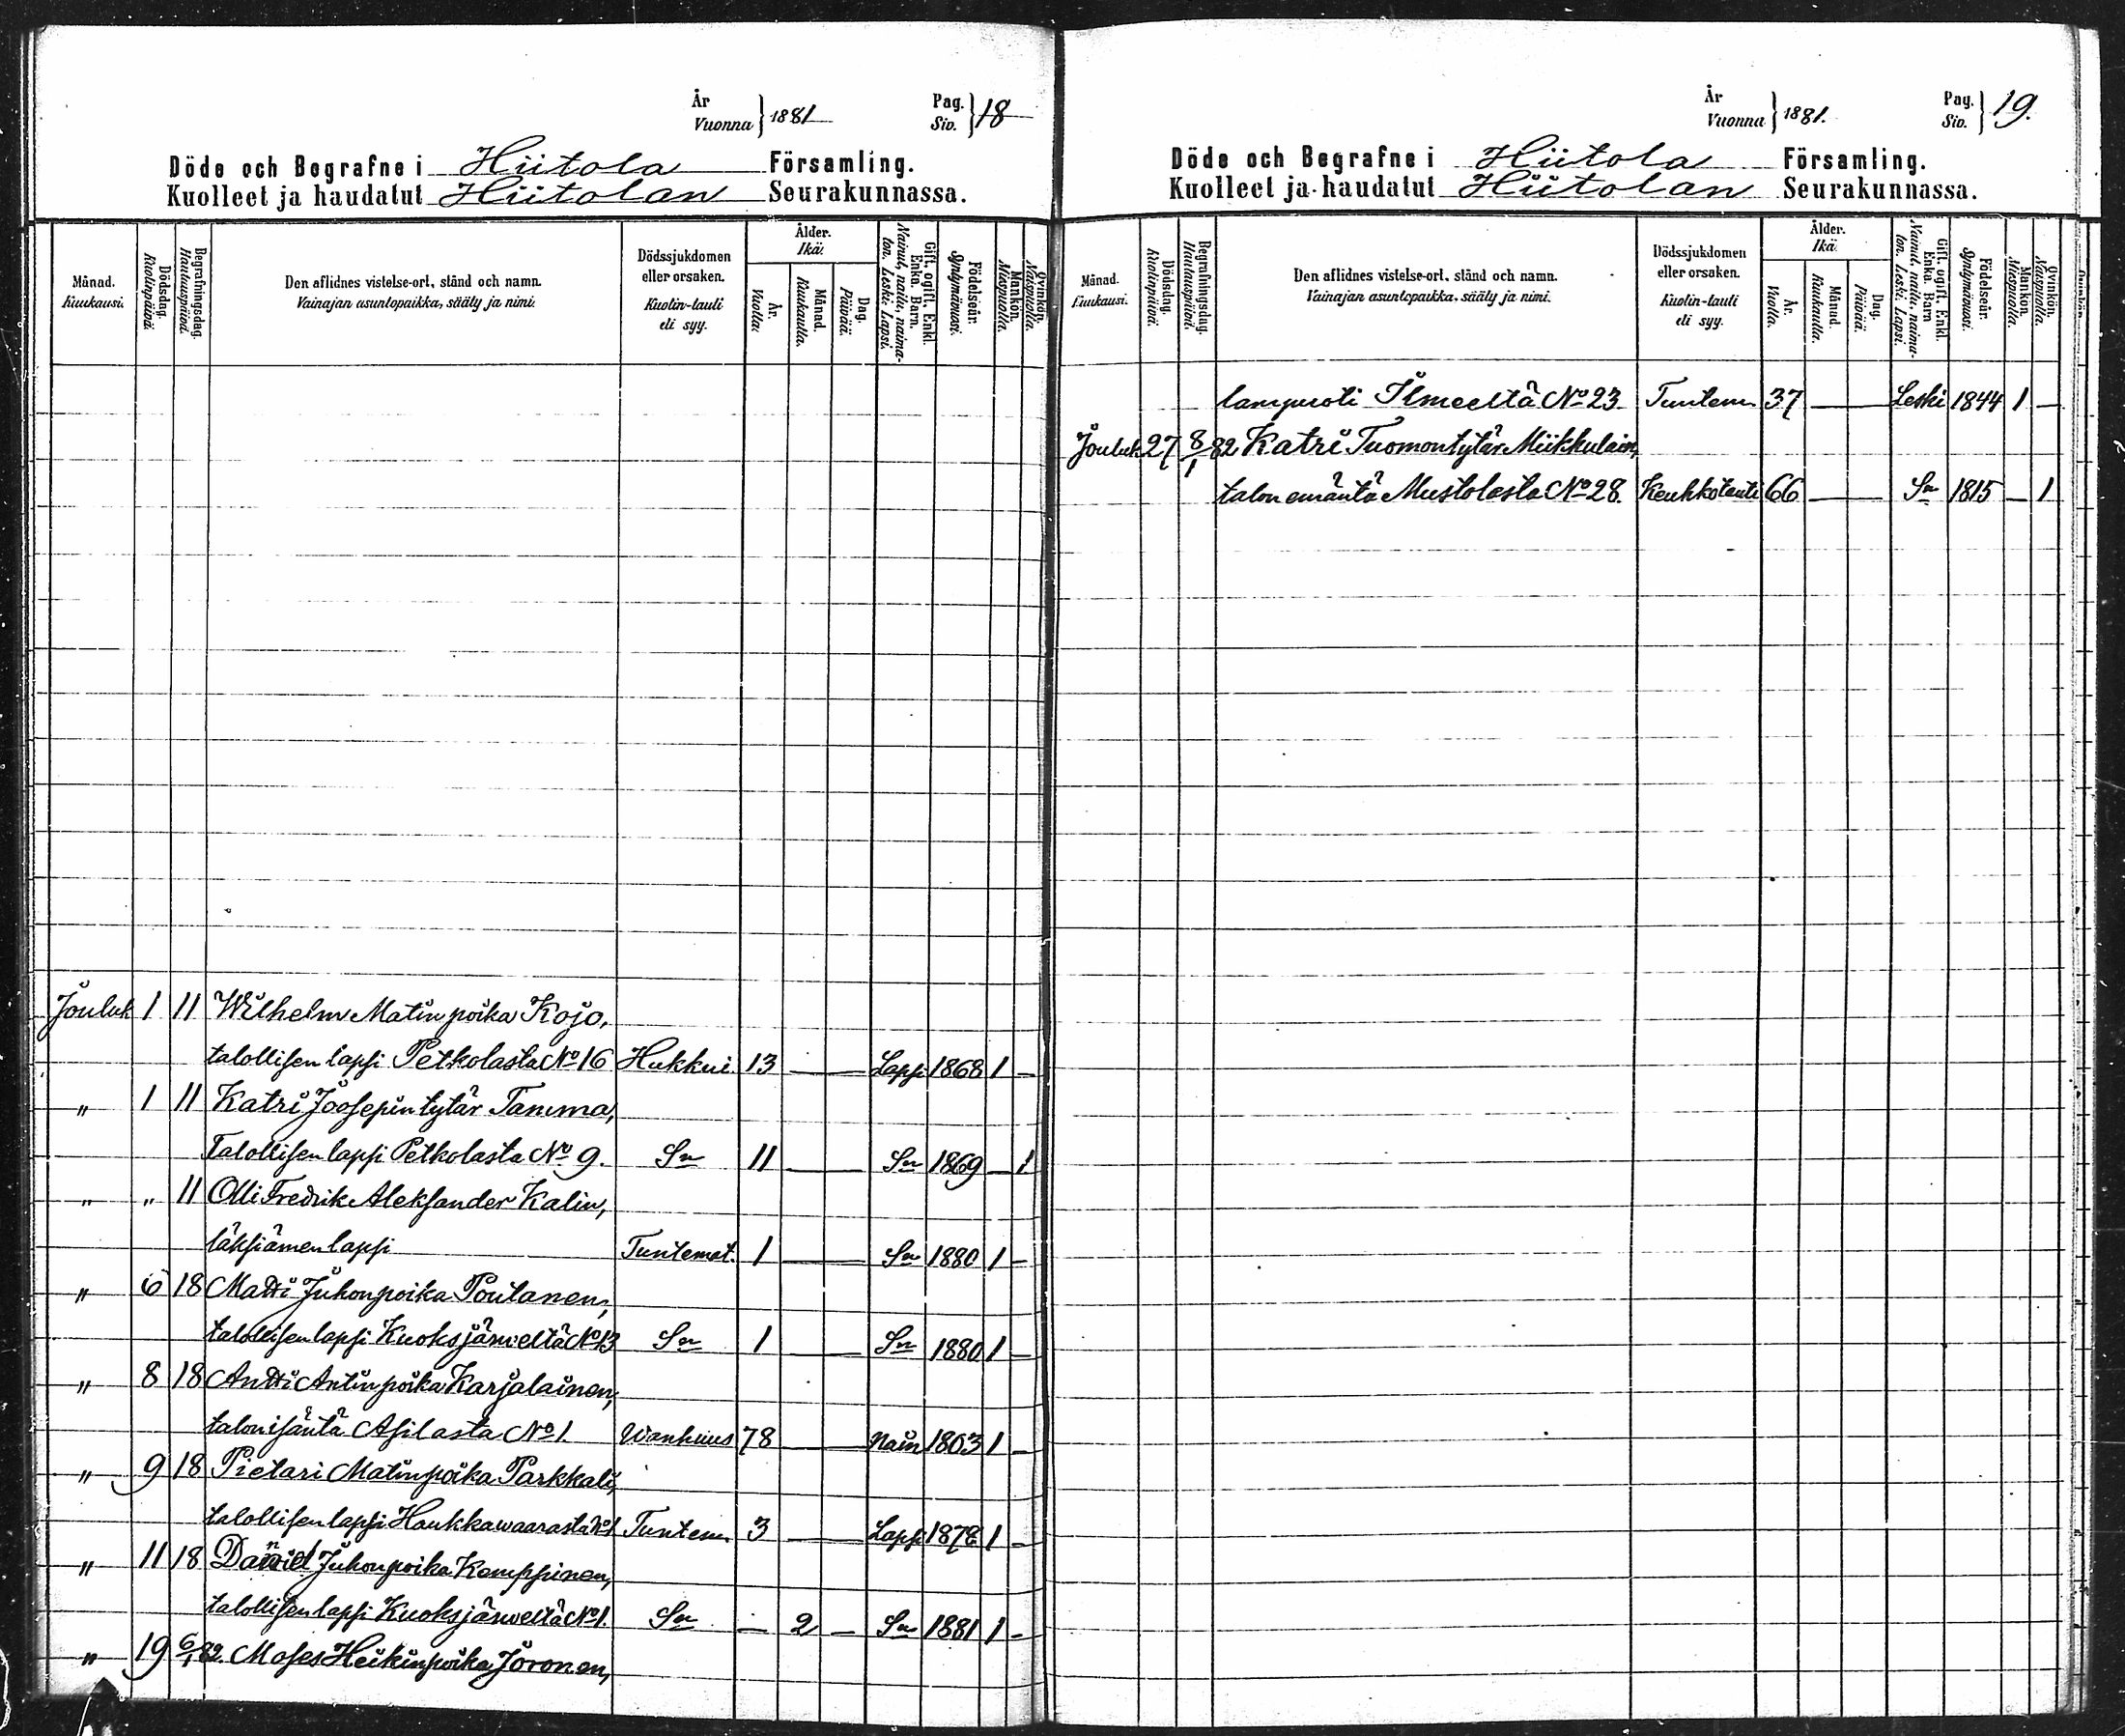 År
Vuonna } 1881
Pag.
Siv. } 18
Döde och Begrafne i Hiitola Församling.
Kuolleet ja haudatut Hiitolan Seurakunnassa.
Månad. Kuukausi.
Dödsdag. Kuolinpäivä.
Begrafningsdag. Hautauspäivä.
Den aflidnes vistelse-ort, stånd och namn.
Vainajan asuntopaikka, sääty ja nimi.
Dödssjukdomen eller orsaken.
Kuolin-tauti eli syy.
Ålder. Ikä.
År. Vuotta.
Månad. Kuukautta.
Dag. Päivää.
Gift, ogift, Enkl. Enka. Barn.
Nainut, naitu, naimaton. Leski. Lapsi.
Födelseår. Syntymävuosi.
Mankön. Miespuolia.
Qvinkön. Naispuolia.
Jouluk 1 11 Wilhelm Matinpoika Kojo,
talollisen lapsi Petkolasta No 16 Hukkui 13 — Lapsi 1868 1 —
" 1 11 Katri Joosepintytär Tamma,
Talollisen lapsi Petkolasta No 9. Sn 11 — Sn 1869 — 1
" " 11 Olli Fredrik Aleksander Kalin,
läksiämen lapsi Tuntemat. 1 — Sn 1880 1 —
" 6 18 Matti Juhonpoika Poutanen,
talollisen lapsi Kuoksjärweltä No 13 Sn 1 — Sn 1880 1 —
" 8 18 Antti Antinpoika Karjalainen,
talon isäntä Asilasta No 1. Wanhuus 78 — Nain 1803 1 —
" 9 18 Pietari Matinpoika Parkkali,
talollisen lapsi Haukkawaarasta No 1 Tuntem 3 — Lapsi 1878 1 —
" 11 18 Daniel Juhonpoika Kemppinen,
talollisen lapsi Kuoksjärweltä No 1. Sn — 2 — Sn 1881 1 —
" 19 6/1 82. Moses Heikinpoika Joronen,
År
Vuonna } 1881.
Pag.
Siv. } 19.
Döde och Begrafne i Hiitola Församling.
Kuolleet ja haudatut Hiitolan Seurakunnassa.
Månad. Kuukausi.
Dödsdag. Kuolinpäivä.
Begrafningsdag. Hautauspäivä.
Den aflidnes vistelse-ort, stånd och namn.
Vainajan asuntopaikka, sääty ja nimi.
Dödssjukdomen eller orsaken.
Kuolin-tauti eli syy.
Ålder. Ikä.
År. Vuotta.
Månad. Kuukautta.
Dag. Päivää.
Gift, ogift, Enkl. Enka. Barn
Nainut, naitu, naimaton. Leski. Lapsi.
Födelseår. Syntymävuosi.
Mankön. Miespuolia.
Qvinkön. Naispuolia.
lampuoti Ilmeeltä No 23. Tuntem 37 — Leski 1844 1 —
Jouluk 27 8/1 82 Katri Tuomontytär Miikkulain,
talon emäntä Mustolasta No 28. Keuhkotauti 66 — Sn 1815 — 1